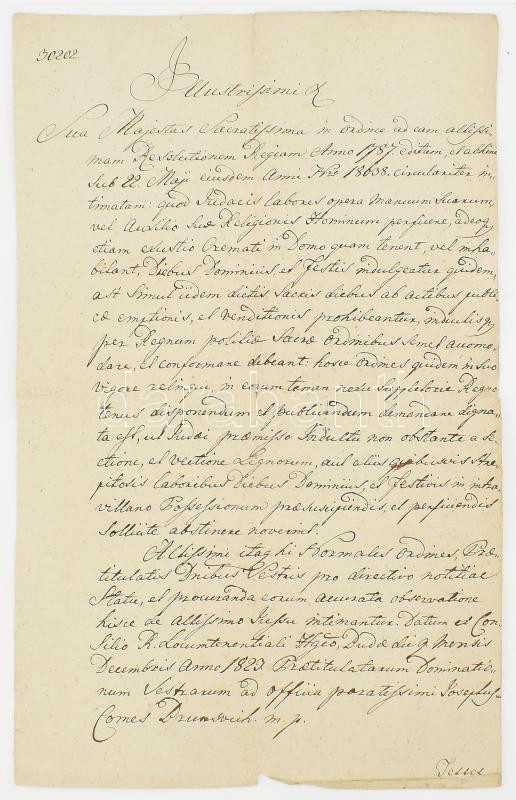 30202.
Illustrissimi &
Sua Majestas Sacratissima in ordine ad eam altissi-
mam Resolutionem Regiam Anno 1787. editam, et abhinc
sub 22. Maji eiusdem Anni Nro 18638. circulariter in-
timatam: quod Judaeis labores opera manuum suarum,
vel Auxilio Suae Religionis Hominum perficere, adeoq
etiam Cremati in Domo quam tenent, vel inha-
bitant, Diebus Dominicis, et Festis indulgeatur quidem,
ast simul iidem dictis sacris diebus ab actibus publi-
cae emptionis, et venditionis prohibeantur,
per Regnum politiae Sacrae ordinibus semet accomo-
dare, et conformare debeant: hosce ordines quidem in suo
vigore relinqui, in eorum tamen nexu Regno
tenus disponendum et publicandum demandare digna-
ta est, ut Judaei praemisso Indultu non obstante a se-
ctione, et vectione Lignorum, aut aliis quibusvis stre-
pitosis laboribus Diebus Dominicis, et festivis in intra-
villano Possessionum praesuscipiendis, et perficiendis
sollicite abstinere noverint.
Altissimi itaq hi Normales ordines, Prae-
titulatis Dnibus Vestris pro directivo notitiae
Statu, et procuranda eorum accurata observatione
hisce de altissimo Jussu intimantur. Datum ex Con-
silio R. Locumtenentiali Hgco, Budae die 9 Mensis
Decembris Anno 1823. Praetitulatarum Dominatio-
num Vestrarum ad officia paratissimi Josephus
Comes Brunsvich. m. p.
darabanth